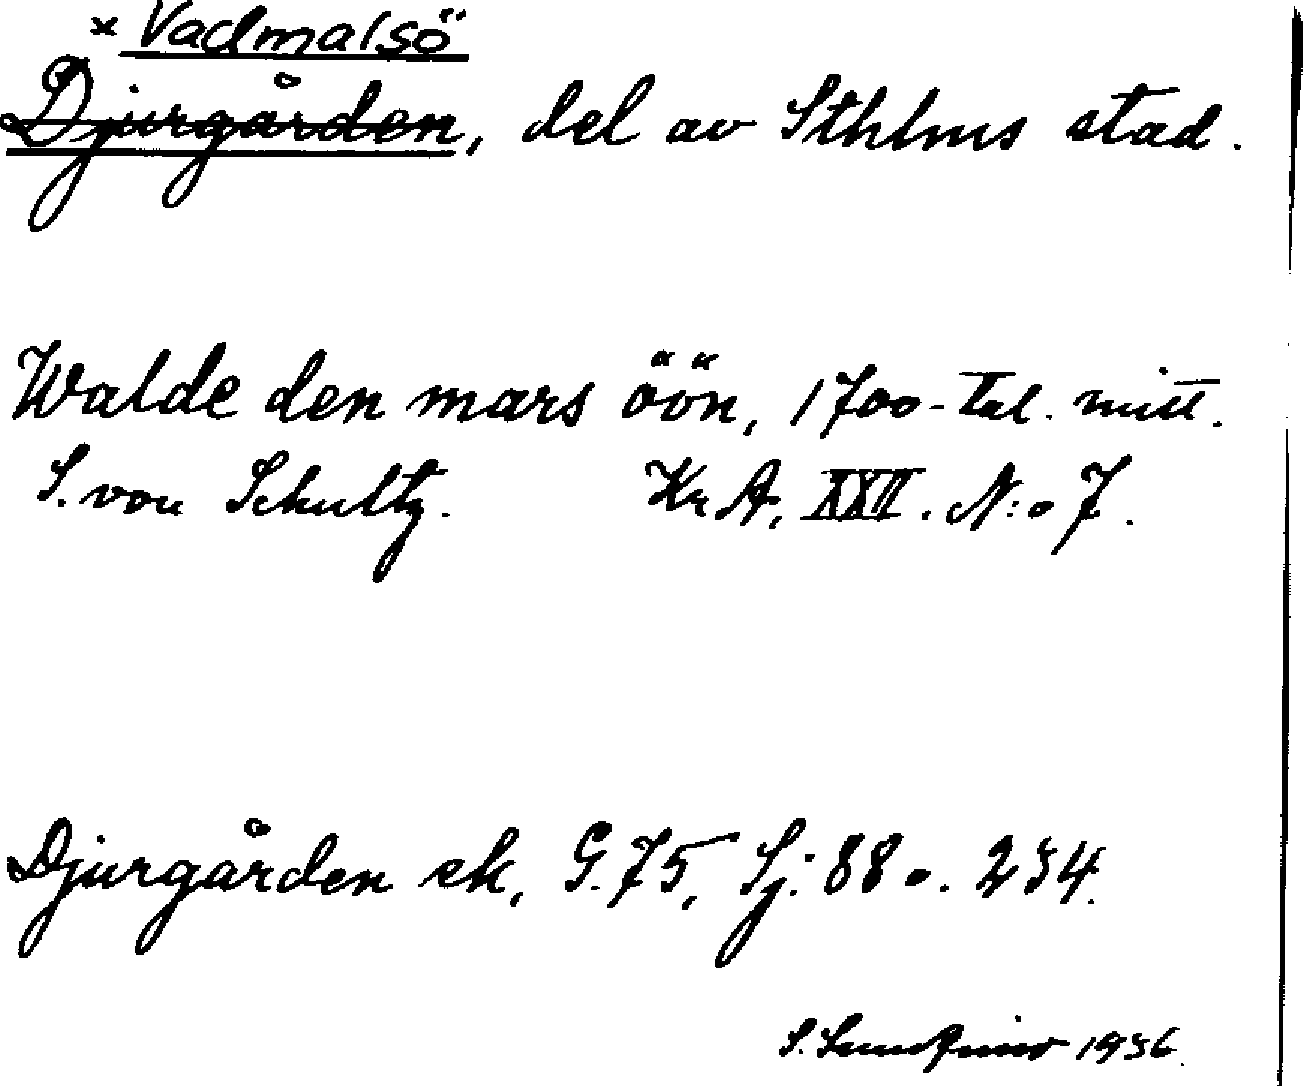 × Vadmalsö
Djurgården, del av Sthlms stad.
Walde den mars öön, 1700-tal. mitt.
S. von Schultz. Kr A, XXII. N:o 7.
Djurgården ek, G. 75, Sj: 88 o. 234.
S. 1936.